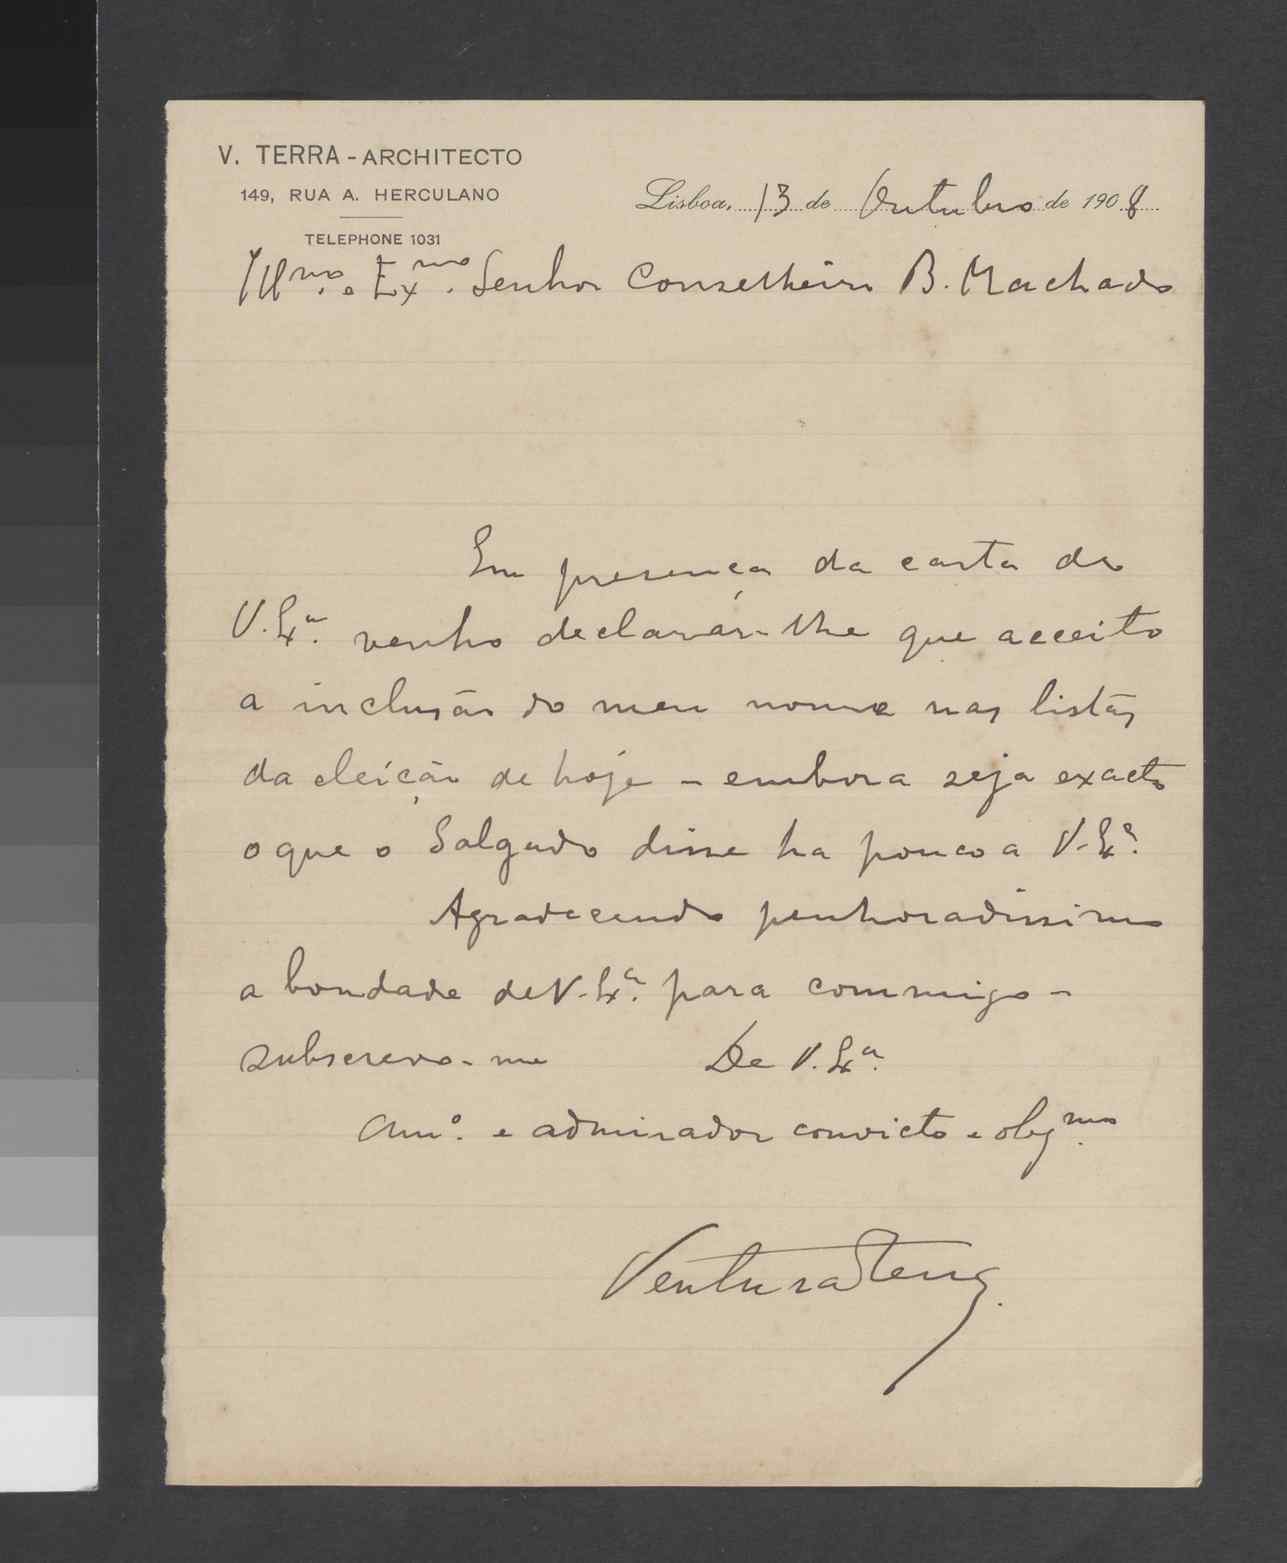 V. TERRA - ARCHITECTO
149, RUA A. HERCULANO
TELEPHONE 1031
Lisboa, 13 de Outubro de 1908
Illmo. e Exmo. Senhor Conselheiro B. Machado
Em presença da carta de
V. Exa. venho declarar-lhe que acceito
a inclusão do meu nome nas listas
da eleição de hoje - embora seja exacto
o que o Salgado disse ha pouco a V. Exa.
Agradecendo penhoradissimo
a bondade de V. Exa. para commigo -
subscrevo-me De V. Exa.
Amo. e admirador convicto e obgmo.
Ventura Terra.